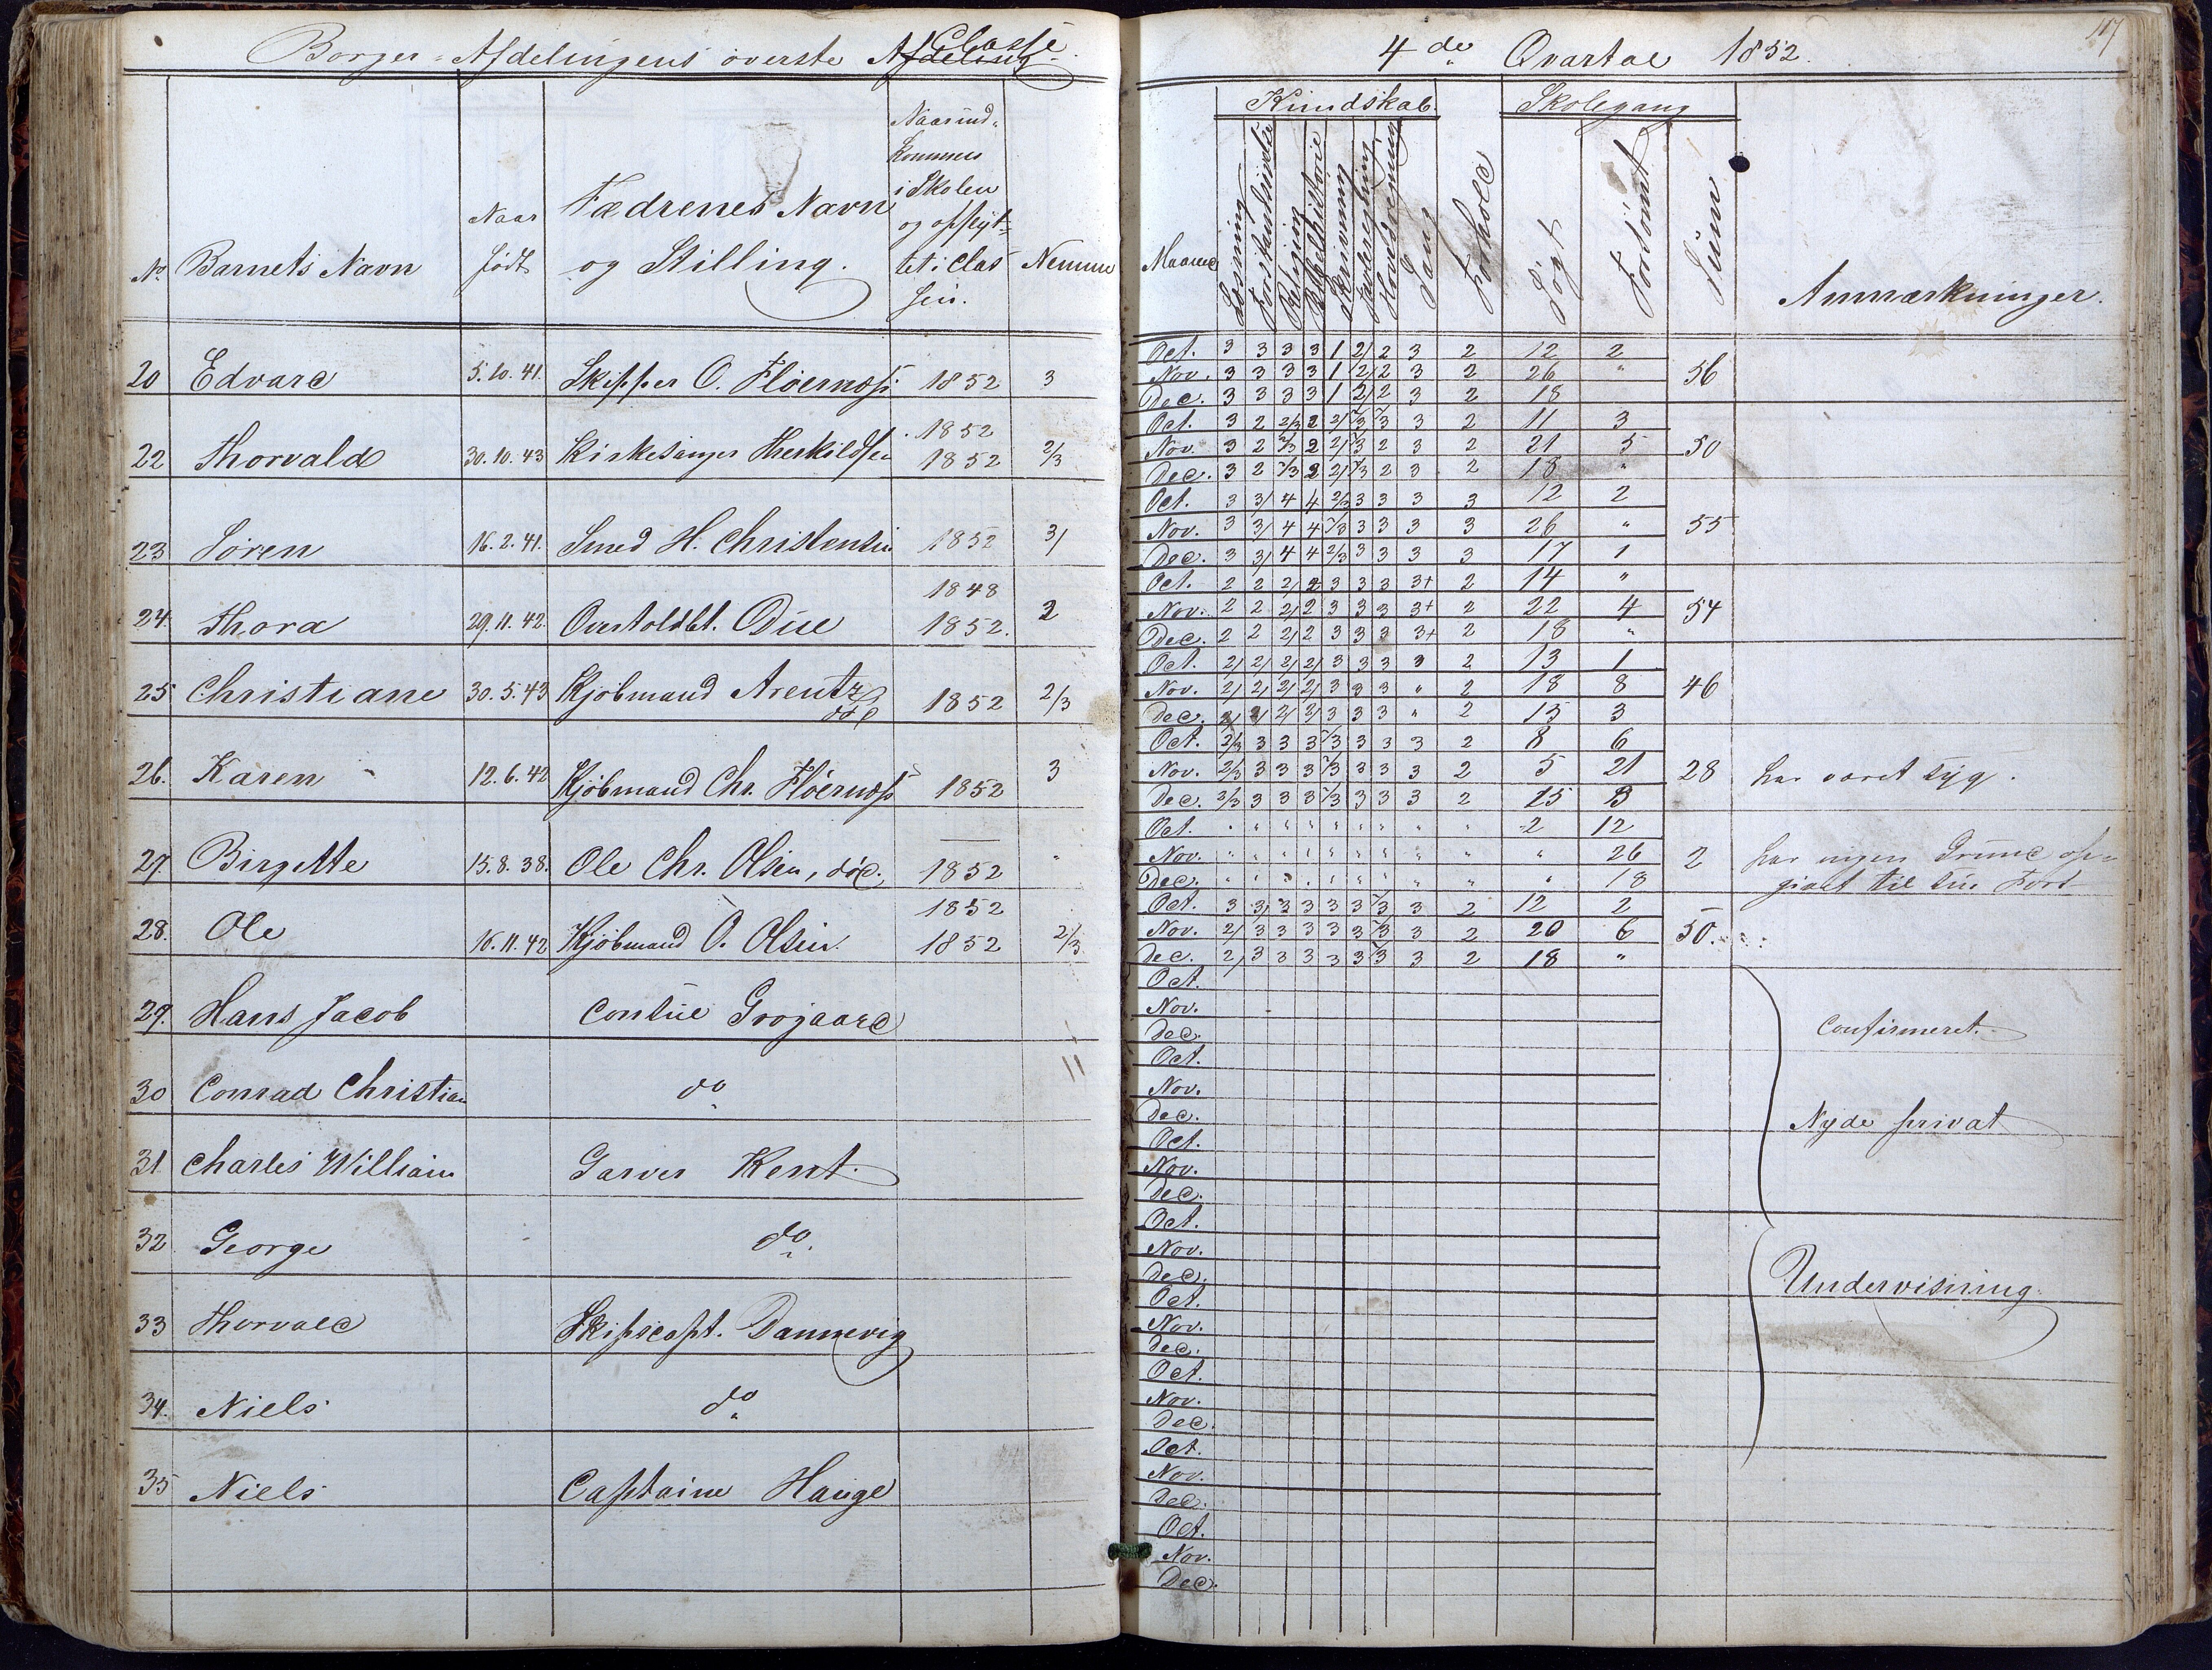 Borger-Afdelingens överste Afdeling Classe
No. Barnets Navn
Naar födt
Fædrenes Navn og Stilling.
Naar ind-
kommen
i Skolen
og opflyt-
tet i Clas
sen.
Nemme
20 Edvard 5.10.41. Skipper O. Fløernæss 1852 3
22 Thorvald 30.10.43 Kirkesanger Therkildsen 1852 1852 2/3
23 Sören 16.2.41. Smed H. Christensen 1852 3/
24. Thora 29.11.42. Overtoldbt. Due 1848 1852. 2
25 Christiane 30.5.43 Kjöbmand Arentz död 1852 2/3
26. Karen 12.6.42 Kjöbmand Chr. Fløernæss 1852 3
27. Birgitte 15.8.38. Ole Chr. Olsen, död. 1852 "
28. Ole 16.11.42 Kjöbmand O. Olsen. 1852 1852 2/3
29. Hans Jacob Consul Grögaard
30 Conrad Christian do
31 Charles William Garver Kent.
32 George do.
33 Thorvald Skipscapt. Dannevig
34. Niels do
35 Niels Captaine Hauge
117
4de Qvartal 1852.
Kundskab. Skolegang
Maaned Læsning Forstandsövelse Religion Bibelhistorie Skrivning Tavleregning Hovedregning Sang Forhold Sögt Forsömt Sum Anmærkninger.
Oct. 3 3 3 3 1 2/ 2 3 2 12 2
Nov. 3 3 3 3 1 2/ 2 3 2 26 " 56
Dec. 3 3 3 3 1 2/ 2 3 2 18
Oct. 3 2 2/3 2 2/ 2/3 2/3 3 2 11 3
Nov. 3 2 2/3 2 2/ 2/3 2 3 2 21 5 50
Dec. 3 2 2/3 2 2/ 2/3 2 3 2 18 "
Oct. 3 3/ 4 4 2/3 3 3 3 3 12 2
Nov. 3 3/ 4 4 2/3 3 3 3 3 26 " 55
Dec. 3 3/ 4 4 2/3 3 3 3 3 17 1
Oct. 2 2 2/ 2 3 3 3 3+ 2 14 "
Nov. 2 2 2/ 2 3 3 3 3+ 2 22 4 54
Dec. 2 2 2/ 2 3 3 3 3+ 2 18 "
Oct. 2/ 2/ 2/ 2/ 3 3 3 3 2 13 1
Nov. 2/ 2/ 2/ 2/ 3 3 3 " 2 18 8 46
Dec. 2/ 2/ 2/ 2/ 3 3 3 " 2 15 3
Oct. 2/3 3 3 3 2/3 3 3 3 2 8 6
Nov. 2/3 3 3 3 2/3 3 3 3 2 5 21 28 har været syg.
Dec. 2/3 3 3 3 2/3 3 3 3 2 15 3
Oct. " " " " " " " " " 2 12
Nov. " " " " " " " " " " 26 2 har ingen Grund op-
Dec. " " " " " " " " " " 18 givet til sin Fors-
Oct. 3 3/ 3 3 3 3 2/3 3 2 12 2
Nov. 2/ 3 3 3 3 3 2/3 3 2 20 6 50.
Dec. 2/ 3 3 3 3 3 2/3 3 2 18 "
Oct.
Nov.
Dec.
Confirmeret.
Oct.
Nov.
Dec.
Nyde privat
Oct.
Nov.
Dec.
Oct.
Nov.
Dec.
Undervisning
Oct.
Nov.
Dec.
Oct.
Nov.
Dec.
Oct.
Nov.
Dec.
Oct.
Nov.
Dec.